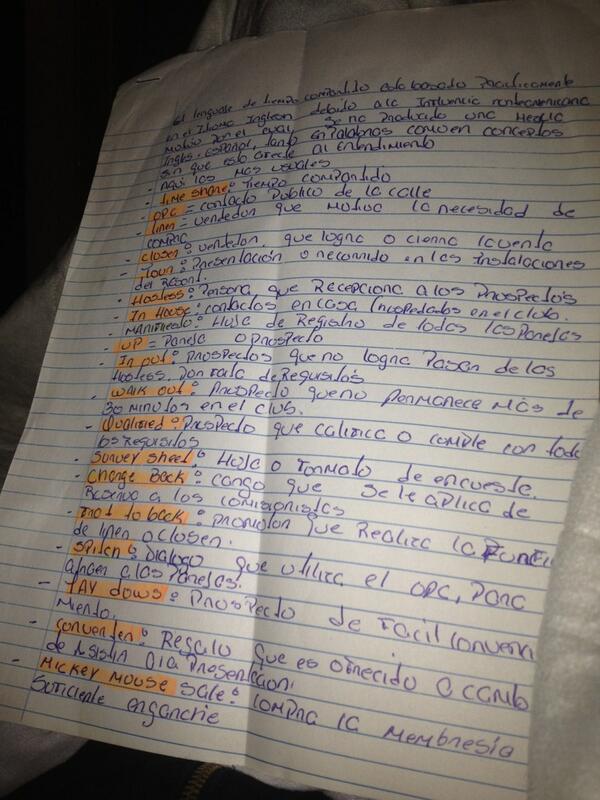 El lenguaje de tiempo compartido esta basado Pacificamente
en el Idioma Ingles debido a la Influencia norteamericana
motivo Por el cual, se ha Producido una Mezcla
Ingles, español, tanto en Palabras como en conceptos
sin que esto afecte al entendimiento
Aqui los mas usuales
- Time share: tiempo compartido
- OPC = contacto Publico de la calle
- Liner = vendedor que motiva la necesidad de
compra
- closer: vendedor, que logra o cierra la venta
- Tour: Presentación o recorrido en las instalaciones
del Resort.
- Hostess: Persona que Recepciona a los Prospectos
- In House: contactos en casa Hospedados en el club.
- Manifiesto: Hoja de Registro de todas las Parejas
- UP = Pareja o Prospecto
- In put: Prospectos que no logra Pasar de las
Hostess, Por falta de Requisitos
- walk out: Prospecto que no Permanece mas de
30 minutos en el club.
- Qualified: Prospecto que califica o cumple con todo
los requisitos
- Survey sheet: Hoja o Formato de encuesta.
- Charge Back: cargo que se le aplica de
Reserva a los comisionistas
- Front to back: Promotor que Realiza la Funci
de liner o closer.
- Spitch: Dialogo que utiliza el OPC, Para
a las Parejas.
- Lay dows: Prospecto de Facil Conven
miento.
- Converter: Regalo que es ofrecido a camb
de Asistir a la Presentacion.
- Mickey Mouse Sale: compra la Membresia
Suficiente enganche